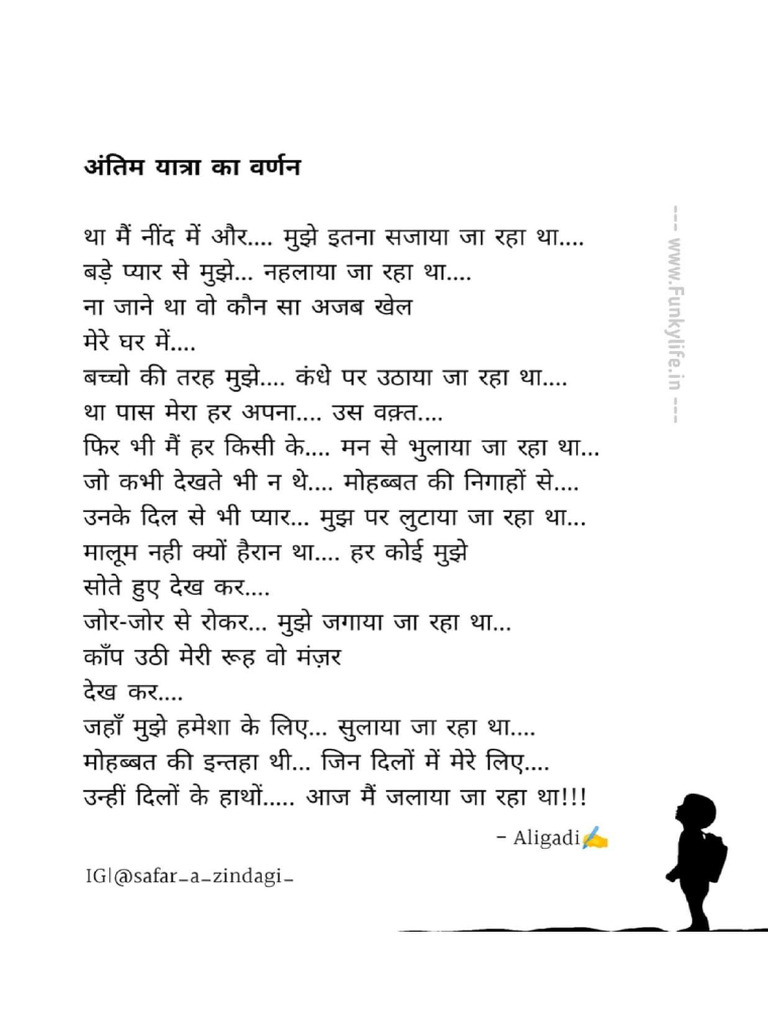 अंतिम यात्रा का वर्णन
था मैं नींद में और.... मुझे इतना सजाया जा रहा था....
बड़े प्यार से मुझे... नहलाया जा रहा था....
ना जाने था वो कौन सा अजब खेल
मेरे घर में....
बच्चो की तरह मुझे.... कंधे पर उठाया जा रहा था....
था पास मेरा हर अपना.... उस वक़्त....
फिर भी मैं हर किसी के.... मन से भुलाया जा रहा था...
जो कभी देखते भी न थे.... मोहब्बत की निगाहों से....
उनके दिल से भी प्यार... मुझ पर लुटाया जा रहा था...
मालूम नही क्यों हैरान था.... हर कोई मुझे
सोते हुए देख कर....
जोर-जोर से रोकर... मुझे जगाया जा रहा था...
काँप उठी मेरी रूह वो मंज़र
देख कर....
जहाँ मुझे हमेशा के लिए... सुलाया जा रहा था....
मोहब्बत की इन्तहा थी... जिन दिलों में मेरे लिए....
उन्हीं दिलों के हाथों..... आज मैं जलाया जा रहा था!!!
- Aligadi✍️
IG|@safar_a_zindagi_
--- www.Funkylife.in ---